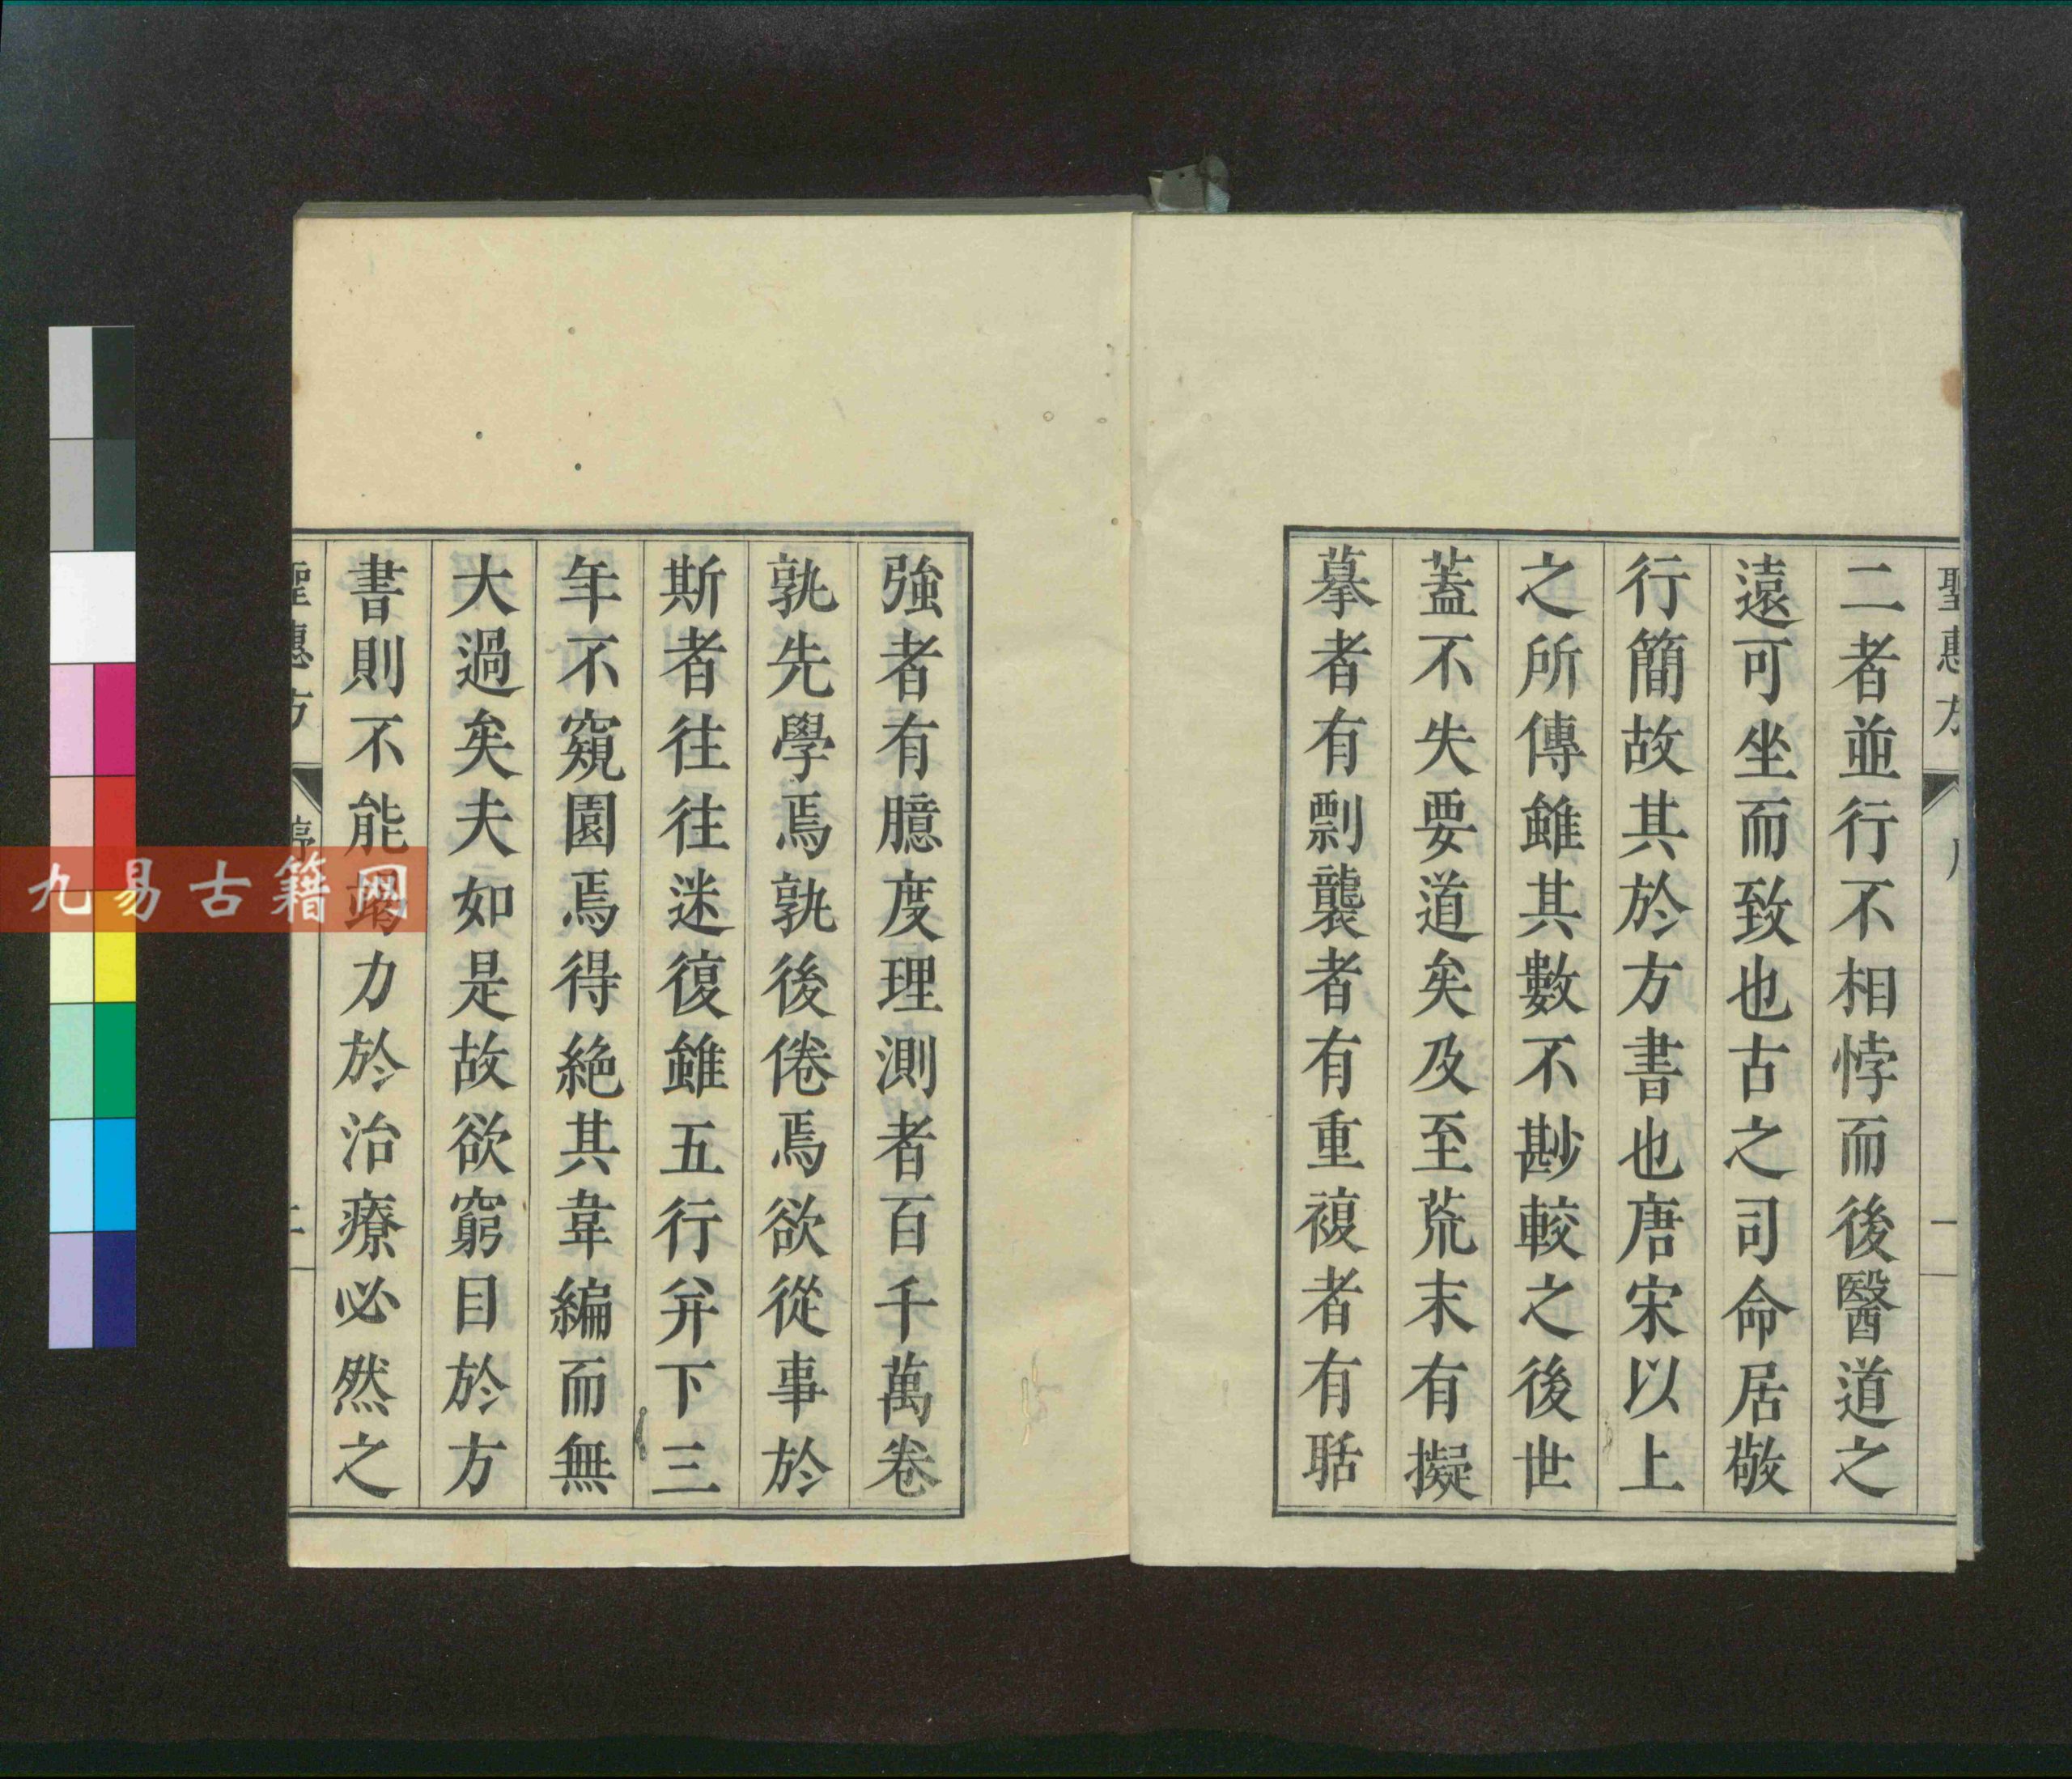 聖惠方
二者並行不相悖而後醫道之
遠可坐而致也古之司命居敬
行簡故其於方書也唐宋以上
之所傳雖其數不尠較之後世
蓋不失要道矣及至荒末有擬
摹者有剽襲者有重複者有聒
強者有臆度理測者百千萬卷
孰先學焉孰後倦焉欲從事於
斯者往往迷復雖五行并下三
年不窺園焉得絶其韋編而無
大過矣夫如是故欲窮目於方
書則不能竭力於治療必然之
聖惠方
序
二
九易古籍网